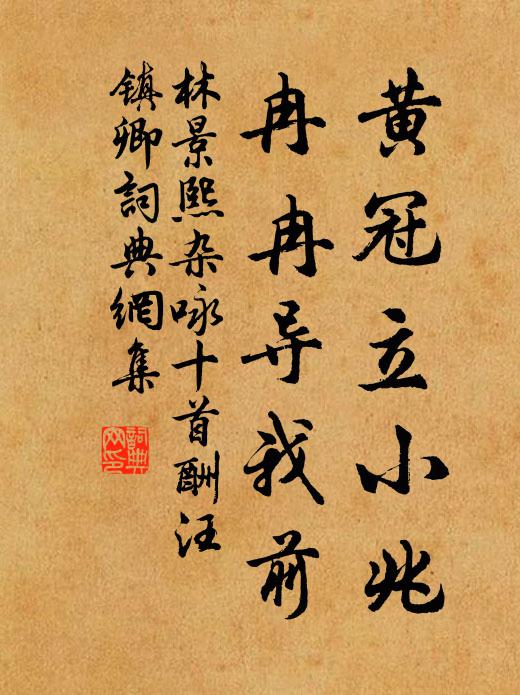 黄冠立小兆
冉冉导我前
林景熙杂咏十首酬汪
镇卿詞典網集
詞典网印